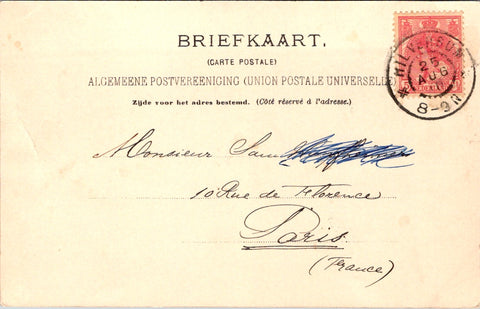 BRIEFKAART.
(CARTE POSTALE)
ALGEMEENE POSTVEREENIGING (UNION POSTALE UNIVERSELLE)
Zijde voor het adres bestemd. (Côté réservé à l'adresse.)
HILVERSUM
25
AUG
8-9N
Monsieur Sam
10 Rue de Florence
Paris.
(France)